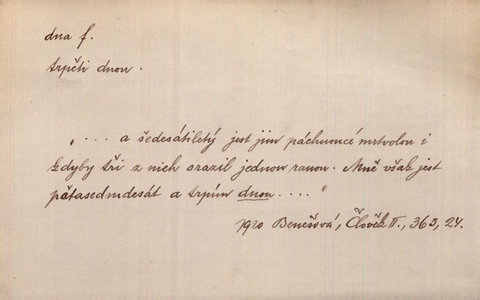 dna f.
trpěti dnou.
„ . . . a šedesátiletý jest jim páchnoucí mrtvolou i
kdyby tři z nich srazil jednou ranou. Mně však jest
pětasedmdesát a trpím dnou. . . . "
1920 Benešová, Člověk II., 363, 24.